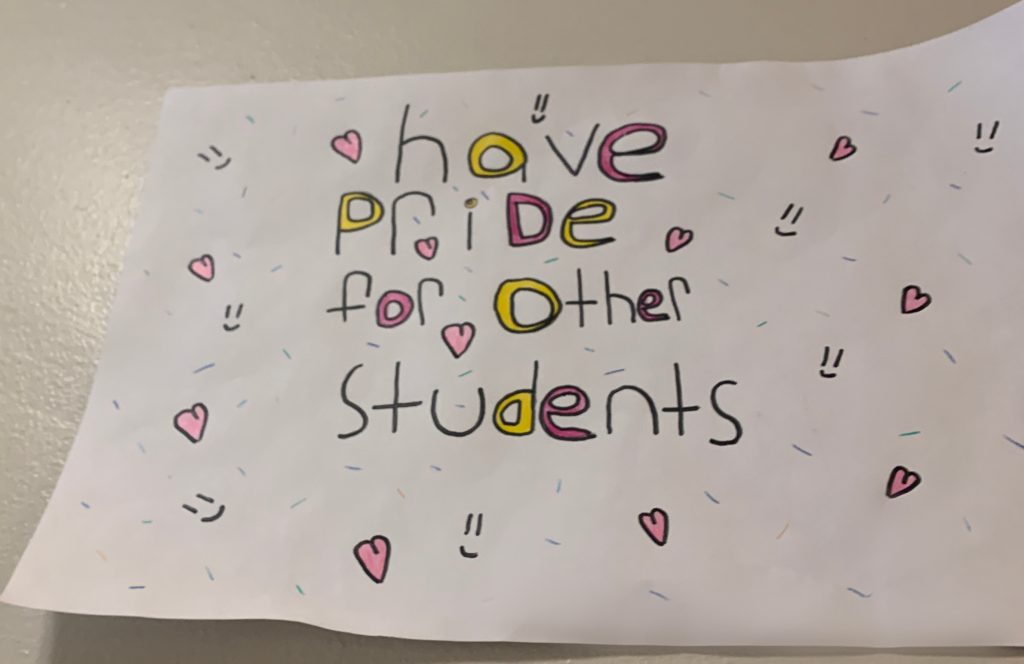 have
PriDe
for Other
students